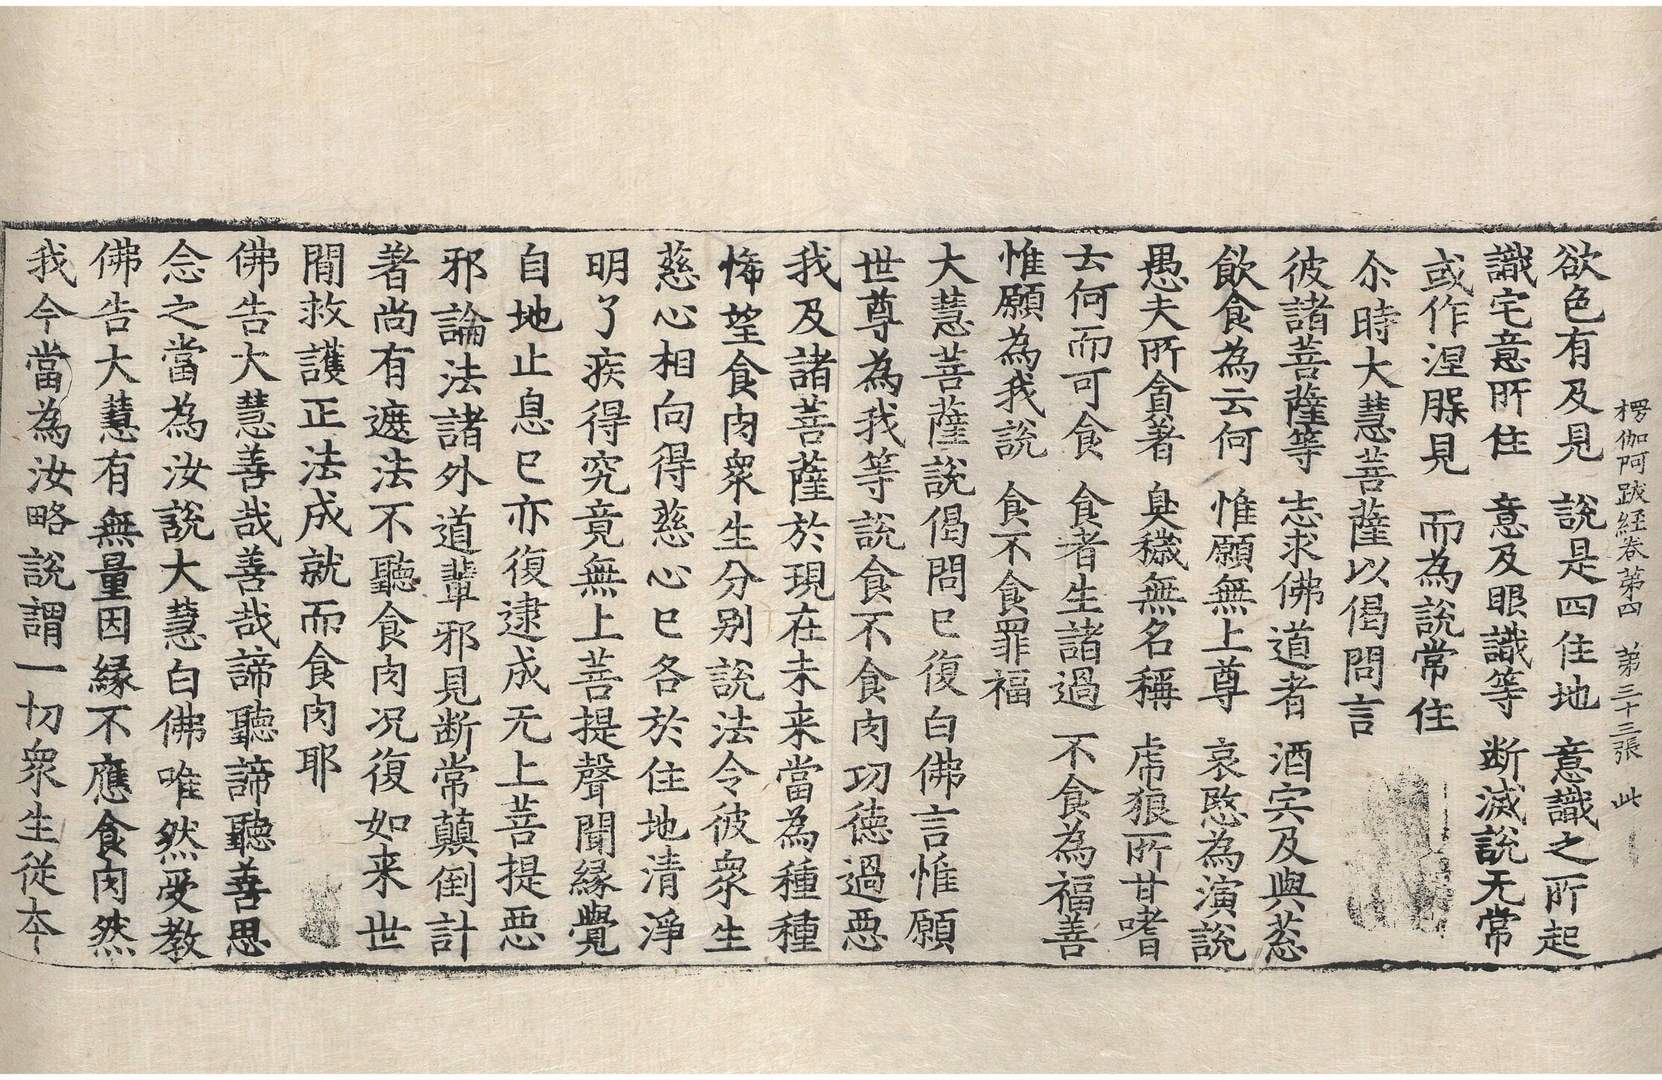 楞伽阿跋経卷第四　第三十三張　此
欲色有及見　說是四住地　意識之所起
識宅意所住　意及眼識等　断滅說无常
或作涅槃見　而為說常住
尒時大慧菩薩以偈問言
彼諸菩薩等　志求佛道者　酒宍及與葱
飲食為云何　惟願無上尊　哀愍為演說
愚夫所貪著　臭穢無名稱　虎狼所甘嗜
云何而可食　食者生諸過　不食為福善
惟願為我說　食不食罪福
大慧菩薩說偈問已復白佛言惟願
世尊為我等說食不食肉功德過惡
我及諸菩薩於現在未来當為種種
悕望食肉衆生分别說法令彼衆生
慈心相向得慈心已各於住地清淨
明了疾得究竟無上菩提聲聞縁覺
自地止息已亦復逮成无上菩提惡
邪論法諸外道輩邪見断常顛倒計
著尚有遮法不聽食肉况復如来世
間救護正法成就而食肉耶
佛告大慧善哉善哉諦聽諦聽善思
念之當為汝說大慧白佛唯然受教
佛告大慧有無量因縁不應食肉然
我今當為汝略說謂一切衆生從夲